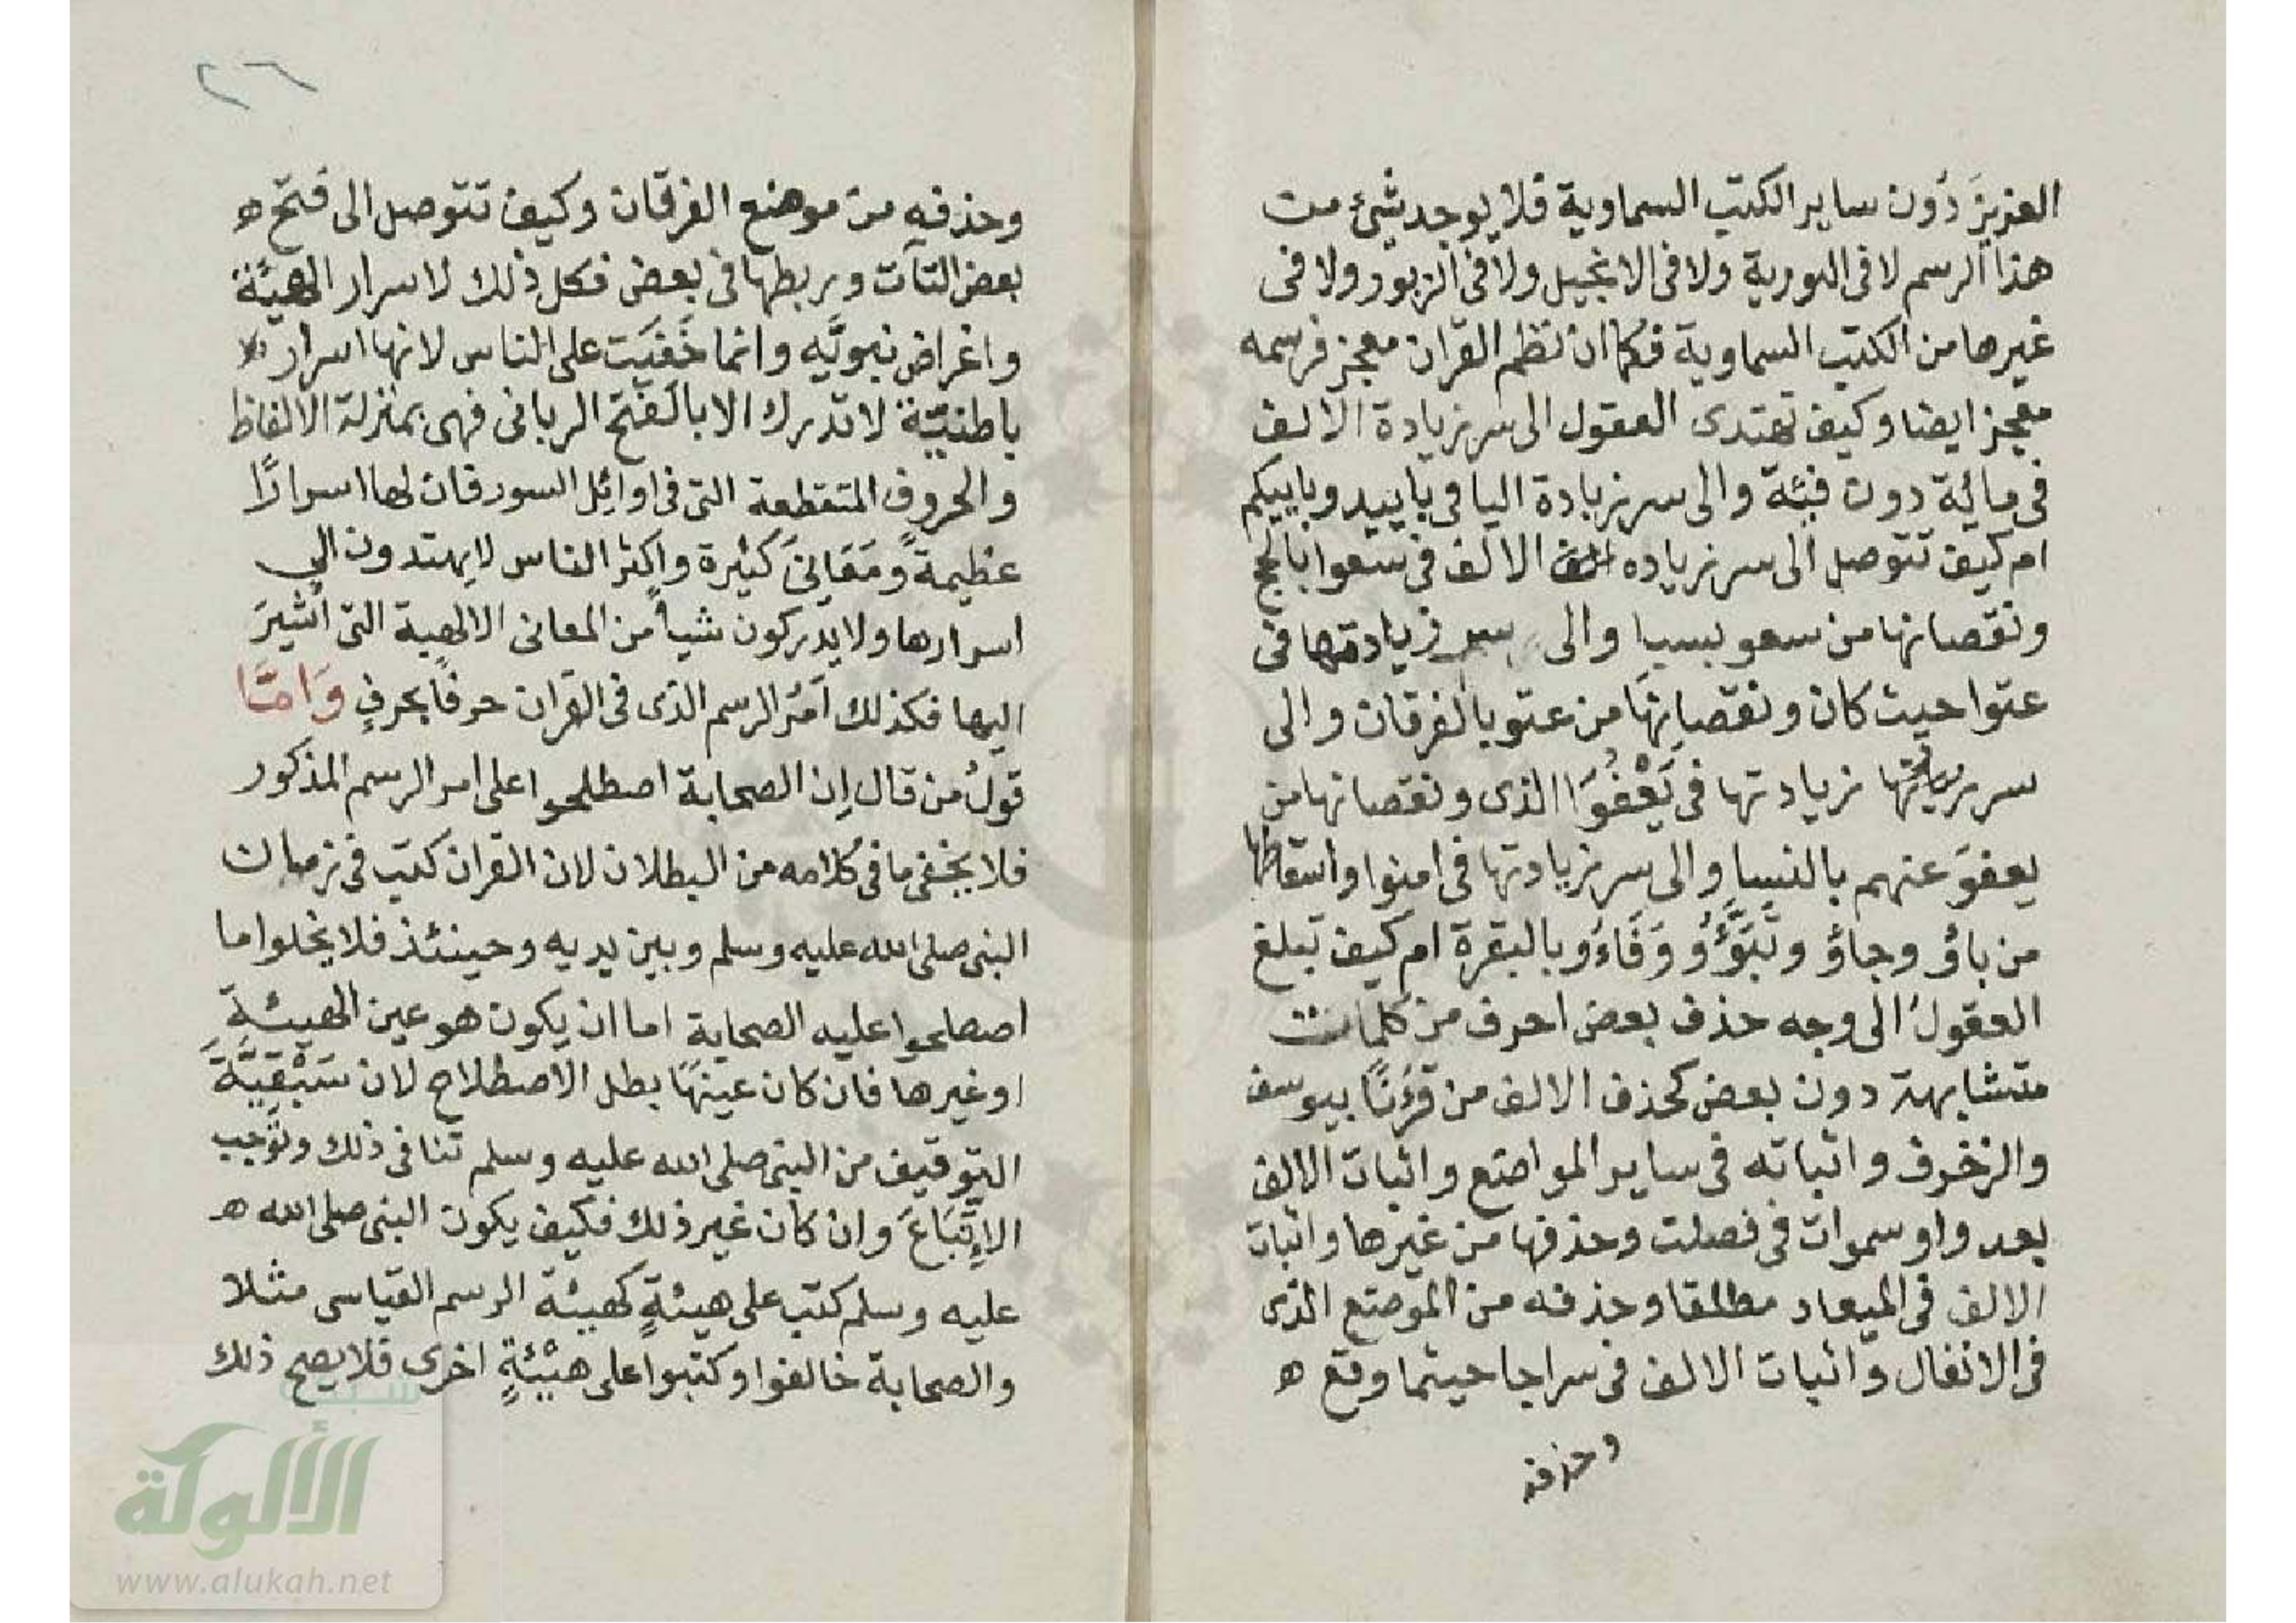 العزيزَ دُون ساير الكتب السماوية فلا يوجد شئ من
هذا الرسم لا فى التورية ولا فى الانجيل ولا فى الزبور ولا فى
غيرها من الكتب السماوية فكما ان نظم القران معجز فرسمه
معجز ايضا وكيف تهتدى العقول الى سر زيادة الالف
فى ماية دون فئة والى سر زيادة اليا فى باييد وباييكم
ام كيف تتوصل الى سر زياده الالف فى سعوا بالحج
ونقصانها من سعو بسبا والى سر زيادتها فى
عتوا حيث كان ونقصانها من عتو بالفرقان والى
سر زيادتها فى يَعْفُوَا الذى ونقصانها من
يعفوَ عنهم بالنسا والى سر زيادتها فى امنوا واسقاطها
من باؤ وجاؤ وتَبَوَّؤُ وَفَاءُو بالبقرة ام كيف تبلغ
العقولُ الى وجه حذف بعض احرف من كلمات
متشابهة دون بعض كحذف الالف من قُرْءَنًا بيوسف
والزخرف واثباته فى ساير المواضع واثبات الالف
بعد واو سموات فى فصلت وحذفها من غيرها واثبات
الالف فى الميعاد مطلقا وحذفه من الموضع الذى
فى الانفال واثبات الالف فى سراجا حيثما وقع ه
وحذفه
٢٦
وحذفه من موضع الفرقان وكيف تتوصل الى فتح ه
بعض التآت وربطها فى بعض فكل ذلك لاسرار الهيّة
واغراض نبويّه وانما خَفيَت على الناس لانها اسرار
باطنيّة لا تدرك الا بالفتح الربانى فهى بمنزلة الالفاظ
والحروف المتقطعة التى فى اوائل السور فان لها اسرارًا
عظيمةً ومَعَانىَ كثيرة واكثر الناس لا يهتدون الى
اسرارها ولا يدركون شيأ من المعانى الالهية التى اُشيرَ
اليها فكذلك اَمْرُ الرسم الذى فى القران حرفًا بحرفٍ وَامَّا
قولُ من قال اِن الصحابة اصطلحوا على امر الرسم المذكور
فلا يخفى ما فى كلامه من البطلان لان القران كتب فى زمان
النبى صلى الله عليه وسلم وبين يديه وحينئذ فلا يخلوا ما
اصطلحوا عليه الصحابة اما ان يكون هو عين الهيئةِ
او غيرها فان كان عينهَا بطل الاصطلاح لان سَبْقيَّةَ
التوقيف من النبى صلى الله عليه وسلم تنافى ذلك وتُوجب
الاِتّبَاعَ وان كان غير ذلك فكيف يكون النبى صلى الله ه
عليه وسلم كتب على هيئةٍ كهيئة الرسم القياسى مثلا
والصحابة خالفوا وكتبوا على هيْئةٍ اخرى فلا يصح ذلك
الألوكة
www.alukah.net